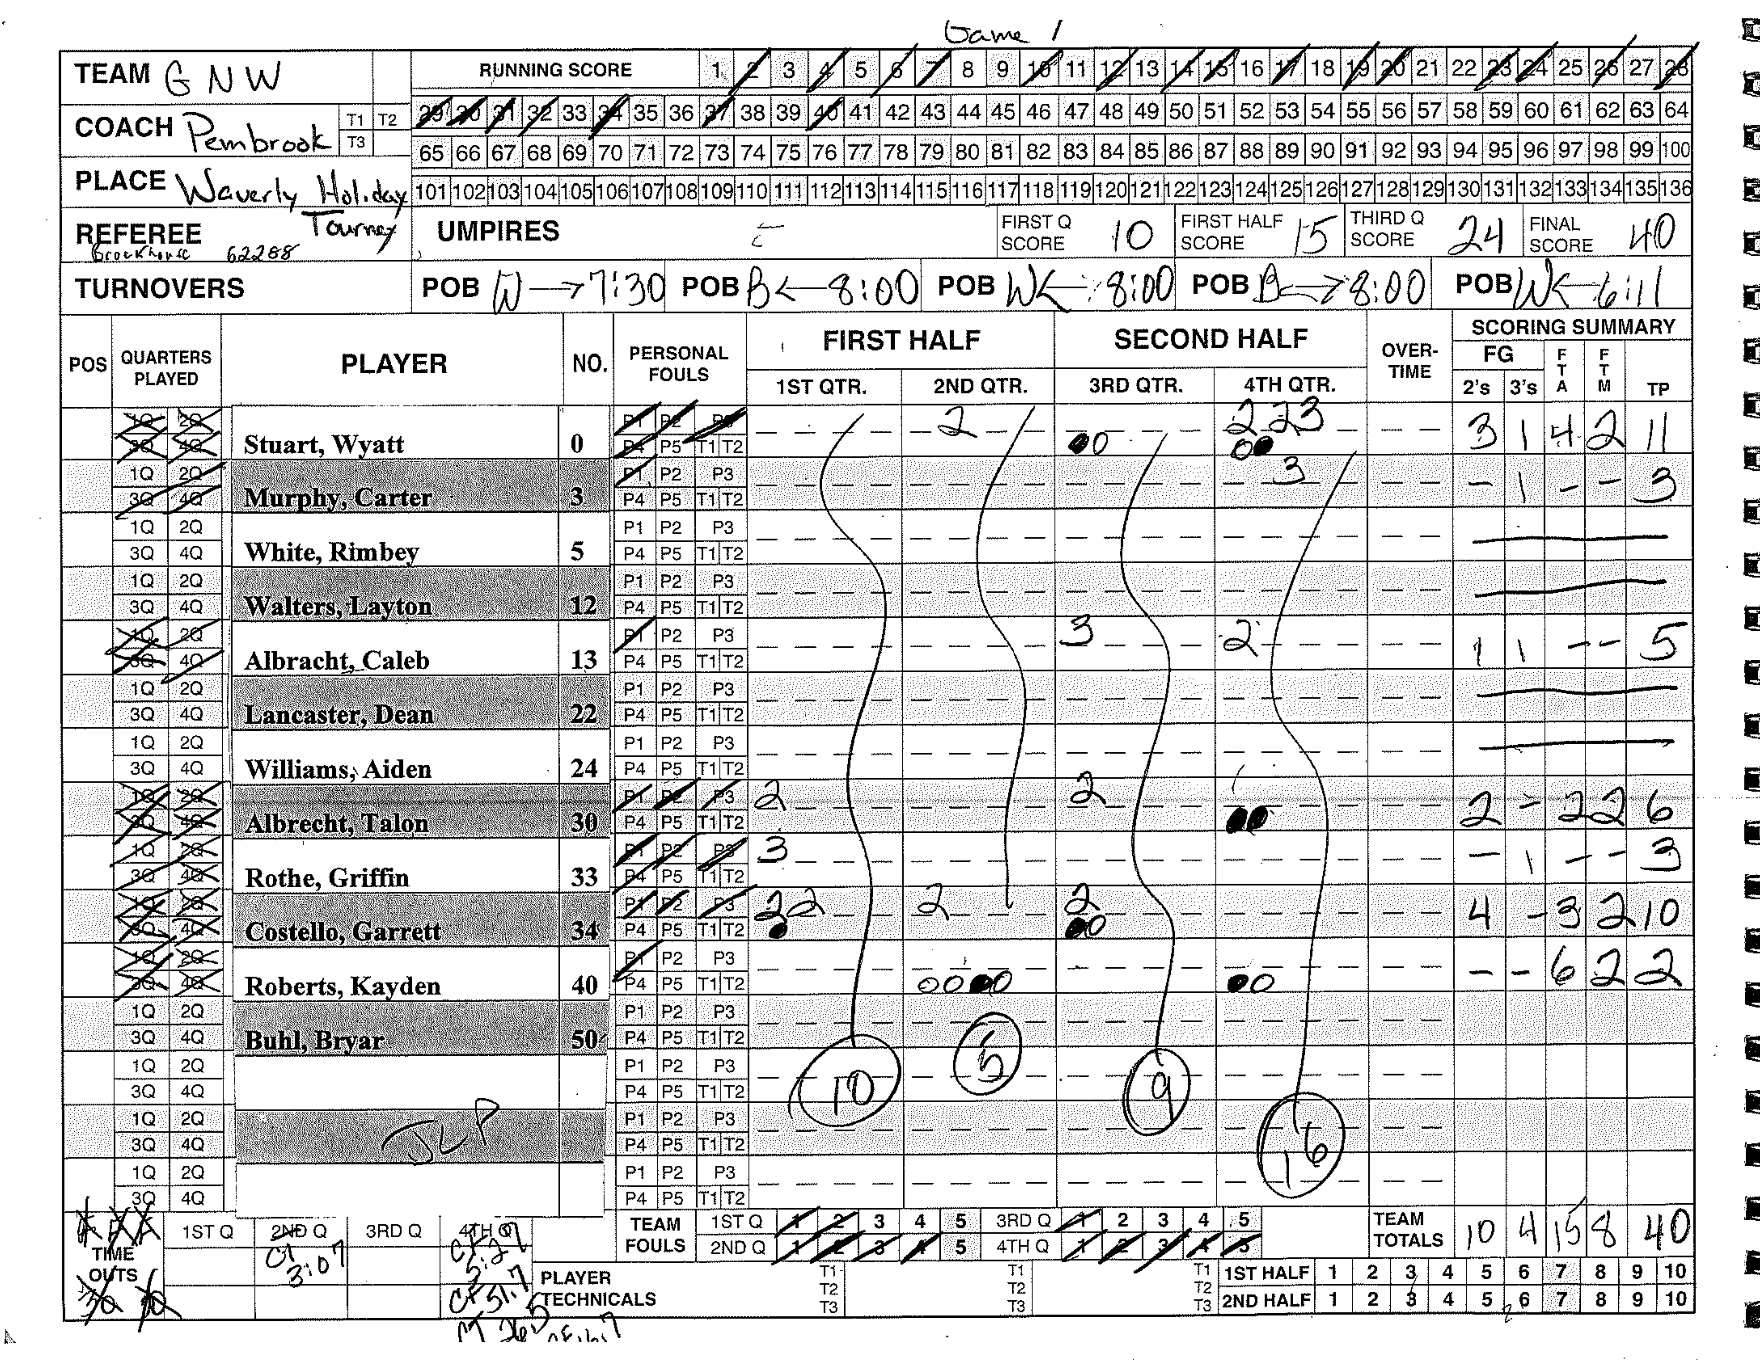 Game 1
TEAM GNW RUNNING SCORE 1 2 3 4 5 6 7 8 9 10 11 12 13 14 15 16 17 18 19 20 21 22 23 24 25 26 27 28
29 30 31 32 33 34 35 36 37 38 39 40 41 42 43 44 45 46 47 48 49 50 51 52 53 54 55 56 57 58 59 60 61 62 63 64
COACH Pembrook T1 T2 T3
65 66 67 68 69 70 71 72 73 74 75 76 77 78 79 80 81 82 83 84 85 86 87 88 89 90 91 92 93 94 95 96 97 98 99 100
PLACE Waverly Holiday Tourney
101 102 103 104 105 106 107 108 109 110 111 112 113 114 115 116 117 118 119 120 121 122 123 124 125 126 127 128 129 130 131 132 133 134 135 136
REFEREE Brockhouse 62288 UMPIRES FIRST Q SCORE 10 FIRST HALF SCORE 15 THIRD Q SCORE 24 FINAL SCORE 40
TURNOVERS POB W → 7:30 POB B ← 8:00 POB W ← 8:00 POB B → 8:00 POB W ← 6:11
POS QUARTERS PLAYED PLAYER NO. PERSONAL FOULS FIRST HALF SECOND HALF OVER-TIME SCORING SUMMARY
1ST QTR. 2ND QTR. 3RD QTR. 4TH QTR. FG 2's 3's FTA FTM TP
1Q 2Q 3Q 4Q Stuart, Wyatt 0 P1 P2 P3 P4 P5 T1 T2 2 2 2 3 3 1 4 2 11
1Q 2Q 3Q 4Q Murphy, Carter 3 P1 P2 P3 P4 P5 T1 T2 3 - 1 - - 3
1Q 2Q 3Q 4Q White, Rimbey 5 P1 P2 P3 P4 P5 T1 T2
1Q 2Q 3Q 4Q Walters, Layton 12 P1 P2 P3 P4 P5 T1 T2
1Q 2Q 3Q 4Q Albracht, Caleb 13 P1 P2 P3 P4 P5 T1 T2 3 2 1 1 - - 5
1Q 2Q 3Q 4Q Lancaster, Dean 22 P1 P2 P3 P4 P5 T1 T2
1Q 2Q 3Q 4Q Williams, Aiden 24 P1 P2 P3 P4 P5 T1 T2
1Q 2Q 3Q 4Q Albrecht, Talon 30 P1 P2 P3 P4 P5 T1 T2 2 2 2 - 2 2 6
1Q 2Q 3Q 4Q Rothe, Griffin 33 P1 P2 P3 P4 P5 T1 T2 3 - 1 - - 3
1Q 2Q 3Q 4Q Costello, Garrett 34 P1 P2 P3 P4 P5 T1 T2 2 2 2 2 4 - 3 2 10
1Q 2Q 3Q 4Q Roberts, Kayden 40 P1 P2 P3 P4 P5 T1 T2 - - 6 2 2
1Q 2Q 3Q 4Q Buhl, Bryar 50 P1 P2 P3 P4 P5 T1 T2
1Q 2Q 3Q 4Q P1 P2 P3 P4 P5 T1 T2 10 5 9
1Q 2Q 3Q 4Q JLP P1 P2 P3 P4 P5 T1 T2 16
1Q 2Q 3Q 4Q P1 P2 P3 P4 P5 T1 T2
TIME OUTS 1ST Q 2ND Q 3RD Q 4TH Q
3:07 5:27 51.7
TEAM FOULS 1ST Q 1 2 3 4 5 3RD Q 1 2 3 4 5 TEAM TOTALS 10 4 15 8 40
2ND Q 1 2 3 4 5 4TH Q 1 2 3 4 5
PLAYER TECHNICALS T1 T2 T3 T1 T2 T3 T1 T2 T3
1ST HALF 1 2 3 4 5 6 7 8 9 10
2ND HALF 1 2 3 4 5 6 7 8 9 10